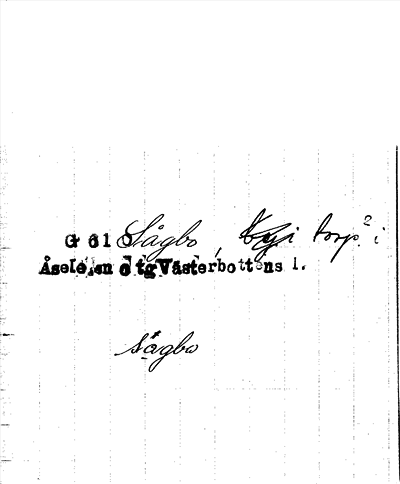 G 61 Sågbo, torp? i
Åsele sn o tg Västerbottens l.
sågbo